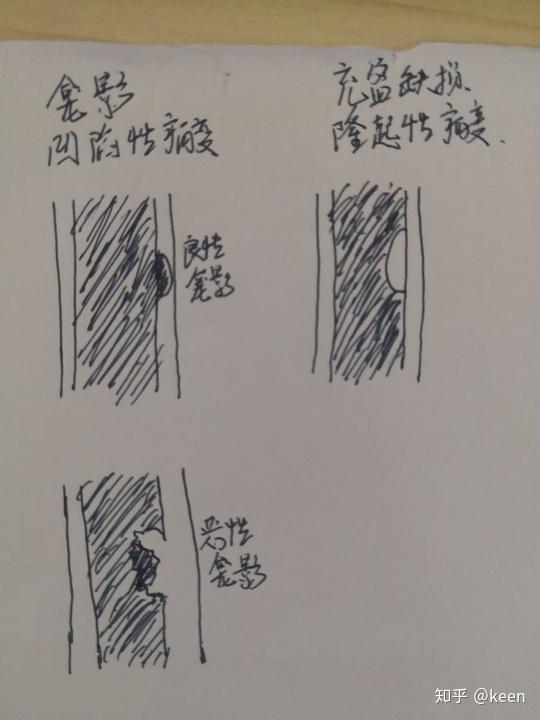 龛影
凹陷性病变
充盈缺损
隆起性病变.
良性
龛影
恶性
龛影
知乎 @keen